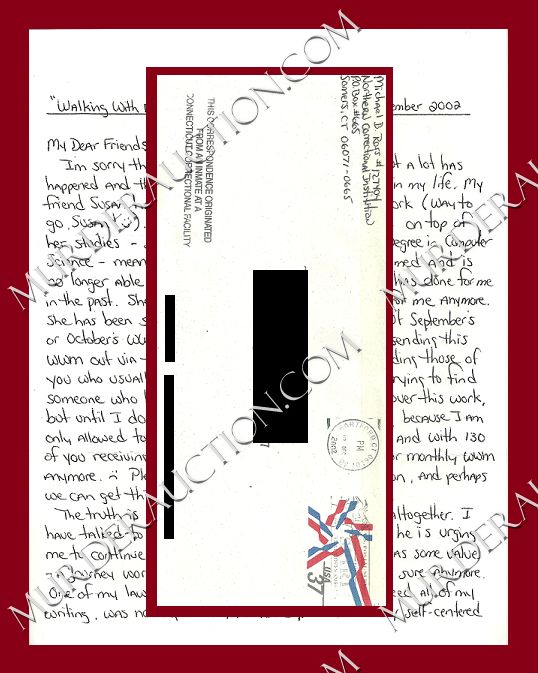 "Walking With ember 2002
My Dear Friends
I'm sorry th t a lot has
happened and th in my life. My
friend Susan ork (way to
go, Susan on top of
her studies - degree in Computer
Science - mean med and is
no longer able has done for me
in the past. She for me anymore.
She has been s September's
or October's WW sending this
WWM out via ding those of
you who usual rying to find
someone who over this work,
but until I do because I am
only allowed to and with 130
of you receivin r monthly WWM
anymore. Pl on, and perhaps
we can get th
The truth is altogether. I
have talked to he is urging
me to continue as some value)
Journey wor sure anymore.
One of my law eed all of my
writing, was no self-centered
Michael D. Ross #127404
Northern Correctional Institution
PO Box #665
Somers, CT 06071-0665
THIS CORRESPONDENCE ORIGINATED
FROM AN INMATE AT A
CONNECTICUT CORRECTIONAL FACILITY
HARTFORD CT
PM
2002
USA
37
MURDERAUCTION.COM
MURDERAUCTION.COM
MURDERAUCTION.COM